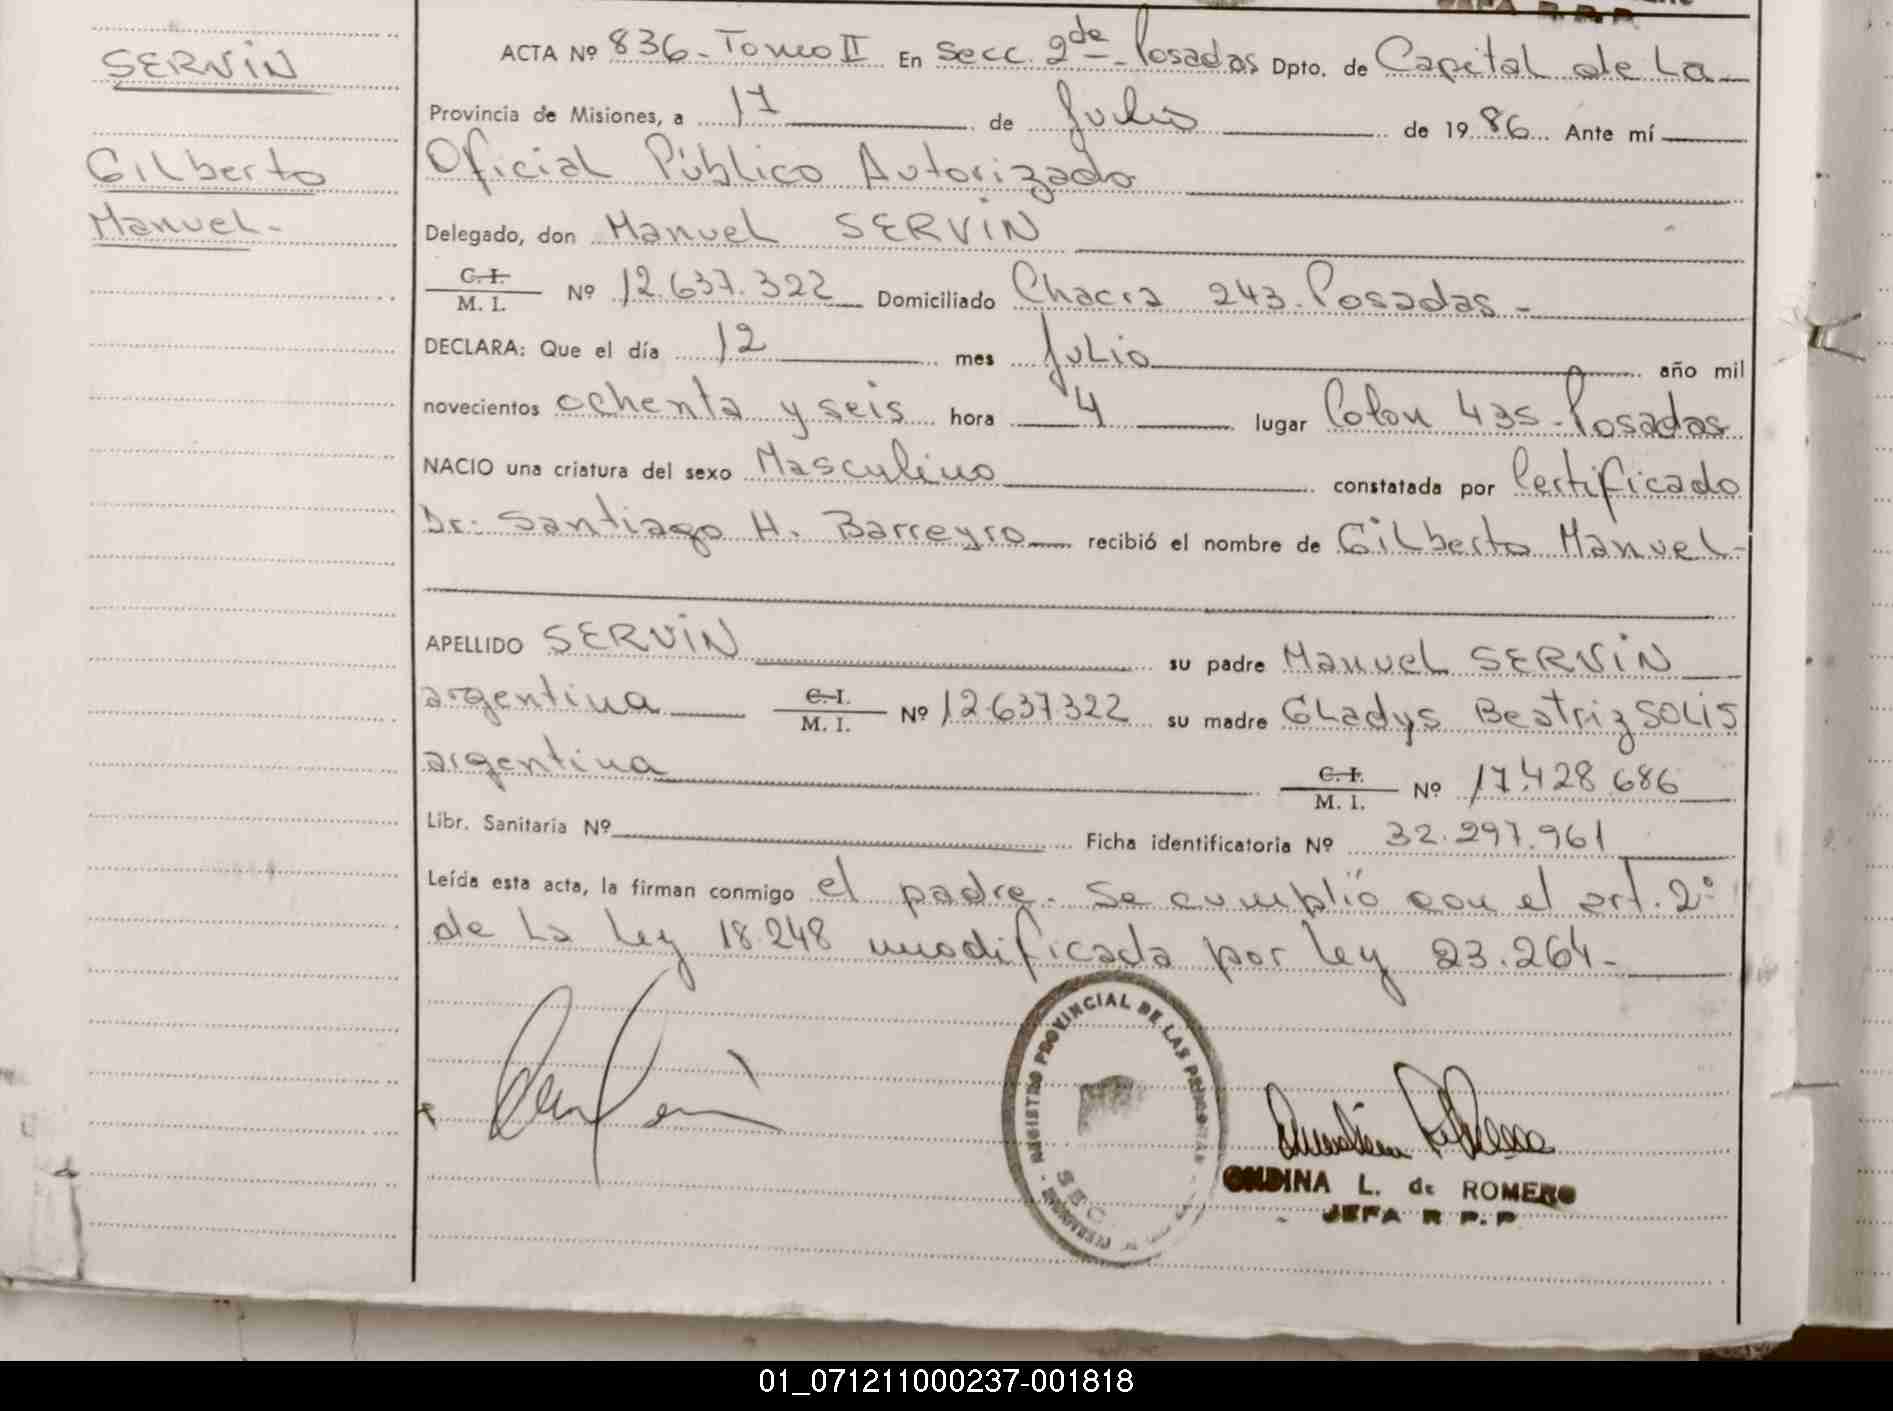 SERVIN
Gilberto
Manuel-
ACTA Nº 836-Tomo II En Secc. 2de - Posadas Dpto. de Capital de La
Provincia de Misiones, a 17 de Julio de 1986 Ante mí
Oficial Público Autorizado
Delegado, don Manuel SERVIN
C. I. / M. I. Nº 12.637.322 Domiciliado Chacra 243-Posadas-
DECLARA: Que el día 12 mes Julio año mil
novecientos ochenta y seis hora 4 lugar Colon 435-Posadas
NACIO una criatura del sexo Masculino constatada por Certificado
Dr: Santiago H. Barreyro recibió el nombre de Gilberto Manuel-
APELLIDO SERVIN su padre Manuel SERVIN
argentina C. I. / M. I. Nº 12.637322 su madre Gladys Beatriz SOLIS
argentina C. I. / M. I. Nº 17.428.686
Libr. Sanitaria Nº Ficha identificatoria Nº 32.297.961
Leída esta acta, la firman conmigo el padre. Se cumplió con el art. 2°
de La Ley 18.248 modificada por ley 23.264-
REGISTRO PROVINCIAL DE LAS PERSONAS
SEC.
ONDINA L. de ROMERO
JEFA R P. P
01_071211000237-001818